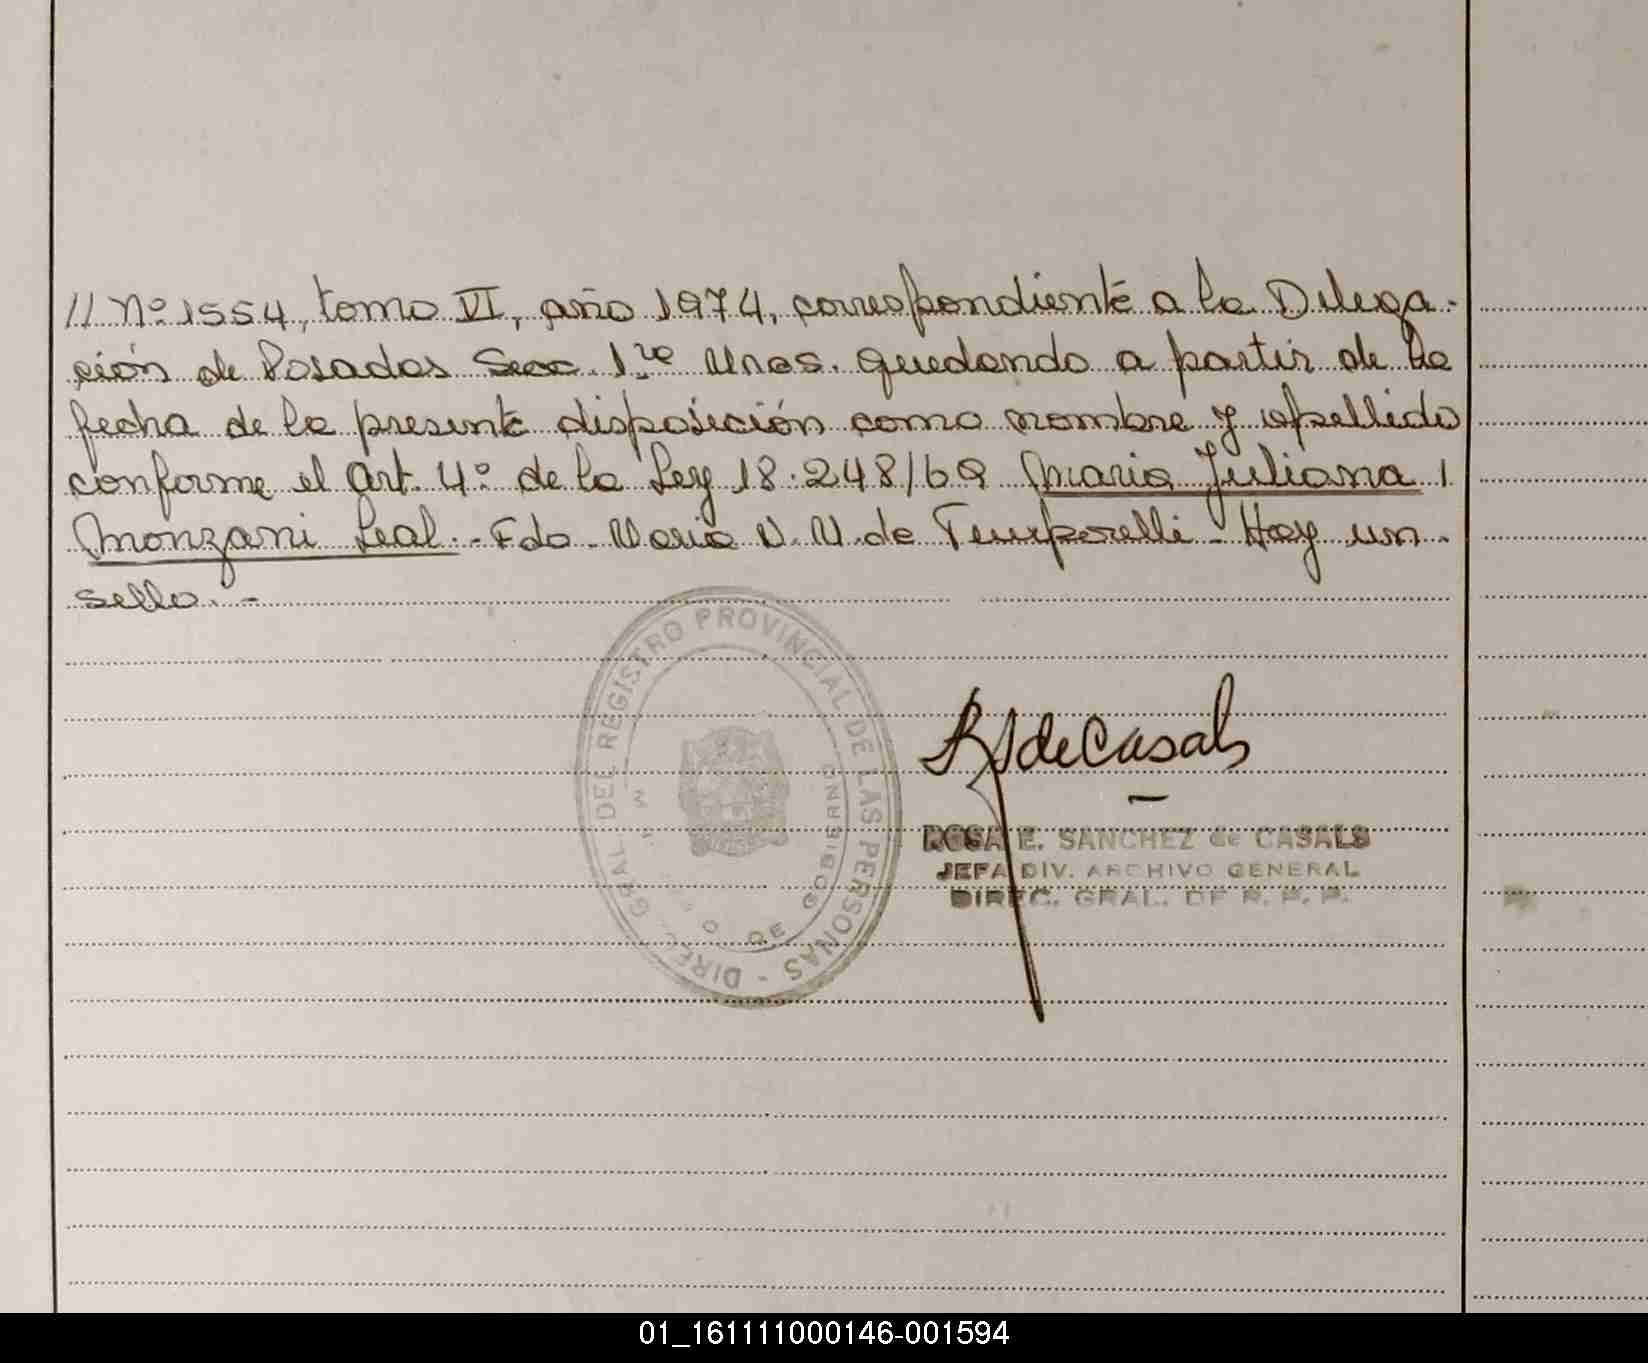 // Nº 1554, tomo VI, año 1974, correspondiente a la Delega-
ción de Posadas Secc. 1ra Mnes. quedando a partir de la
fecha de la presente disposición como nombre y apellido
conforme el Art. 4º de la Ley 18.248/69 Maria Juliana
Monzani Leal.- Fdo. Maria de Temporelli - Hay un
sello.-
DIREC. GRAL. DEL REGISTRO PROVINCIAL DE LAS PERSONAS -
M DE GOBIERNO
R S de Casals
ROSA E. SANCHEZ de CASALS
JEFA DIV. ARCHIVO GENERAL
DIREC. GRAL. DE R. P. P.
01_161111000146-001594